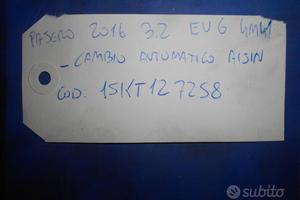 PAJERO 2016 3.2 EU6 4M41
- CAMBIO AUTOMATICO AISIN
COD: 15KT127258
subito